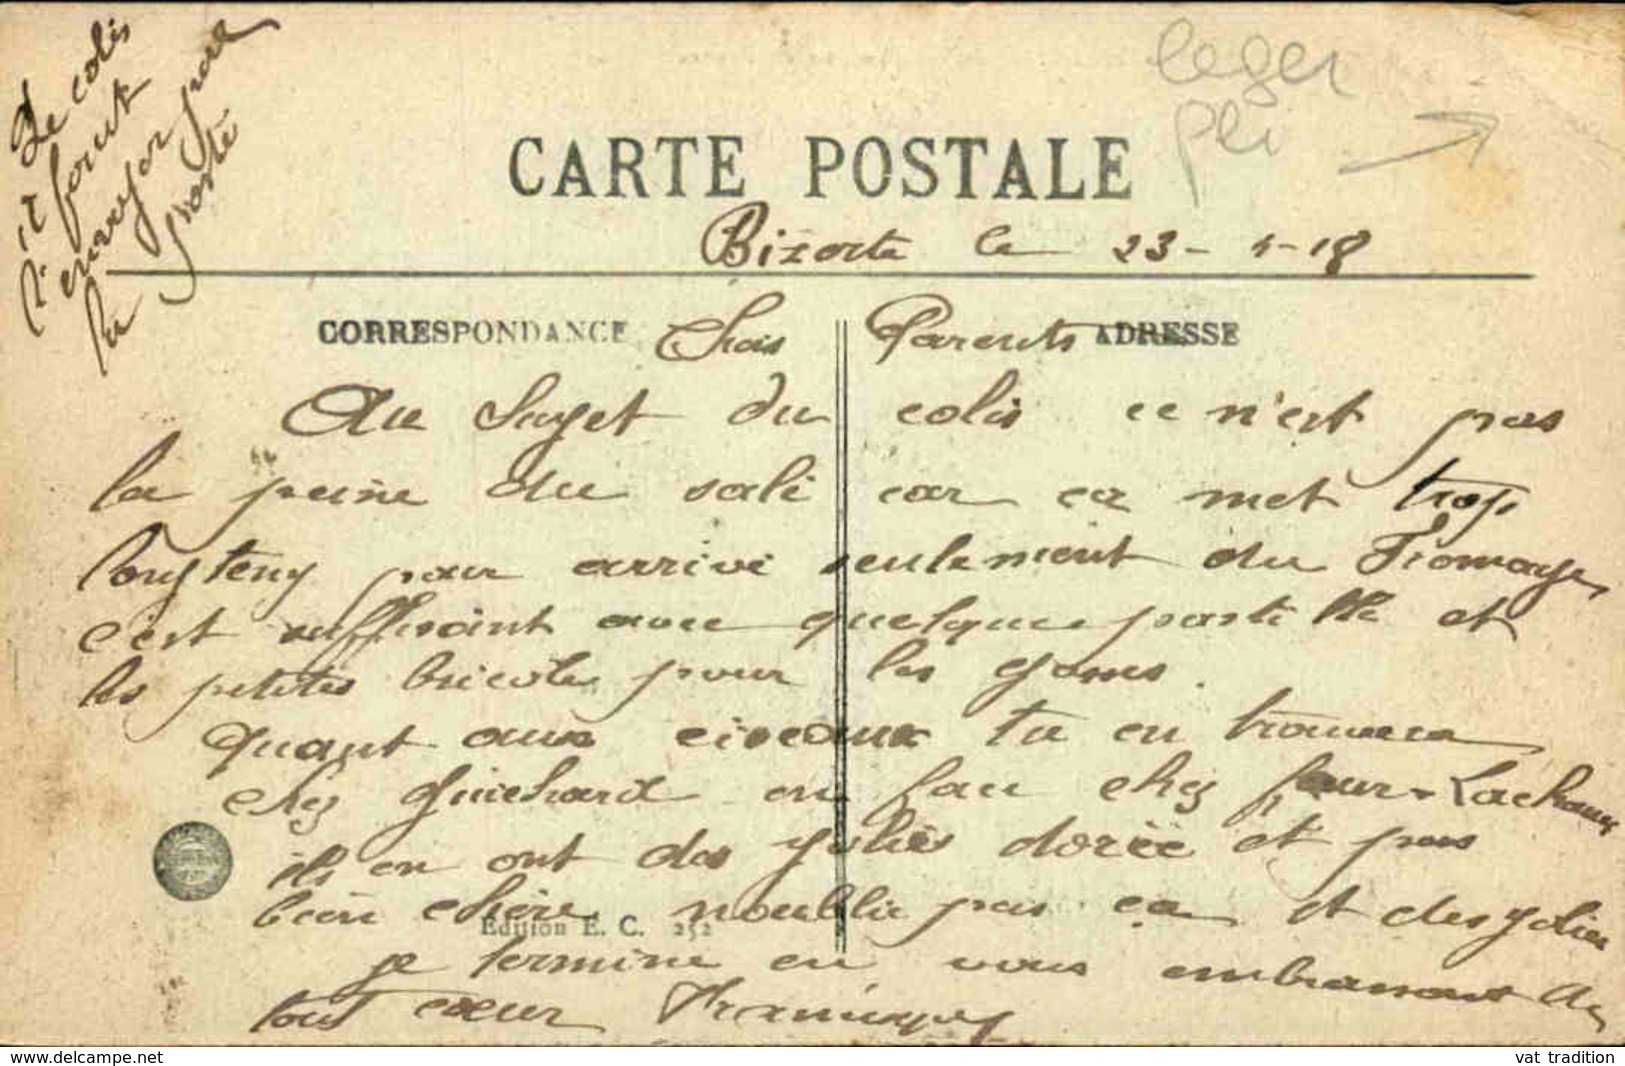 Le colis
il fout
l'envoyer par
la poste
leger
pli
CARTE POSTALE
Bizerte le 23 - 4 - 18
CORRESPONDANCE
ADRESSE
Chais Parents
Au Sujet du colis ce n'est pas
la peine du salé car ca met trop
longtemp pour arrivé seulement du Fromage
c'est suffisant avec quelque pastille et
les petites bricole pour les goses.
Quant aux ciseaux tu en trouvera
chez Guichard on bau chez Four-Lachaux
ils en ont des jolies dorée et pas
bien chère noublie pas ca et des jolies
Edition E. C. 252
je termine en vous embrassant de
tout cœur
vat tradition
En vente sur delcampe.net